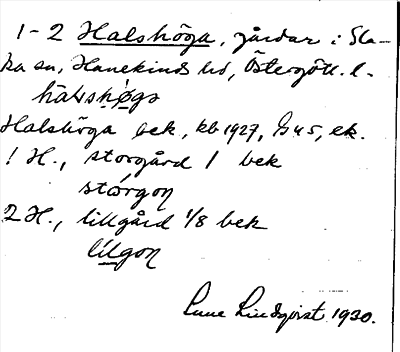 1-2 Halshöga, gårdar i Sla-
ka sn, Hanekinds hd, Östergötl. l.
hàlshøgs
Halshöga bek, kb 1927, GS 45, ek.
1 H., storgård 1 bek
stórgoɳ
2 H., lillgård 1/8 bek
lìlgoɳ
Sune Lindqvist 1930.